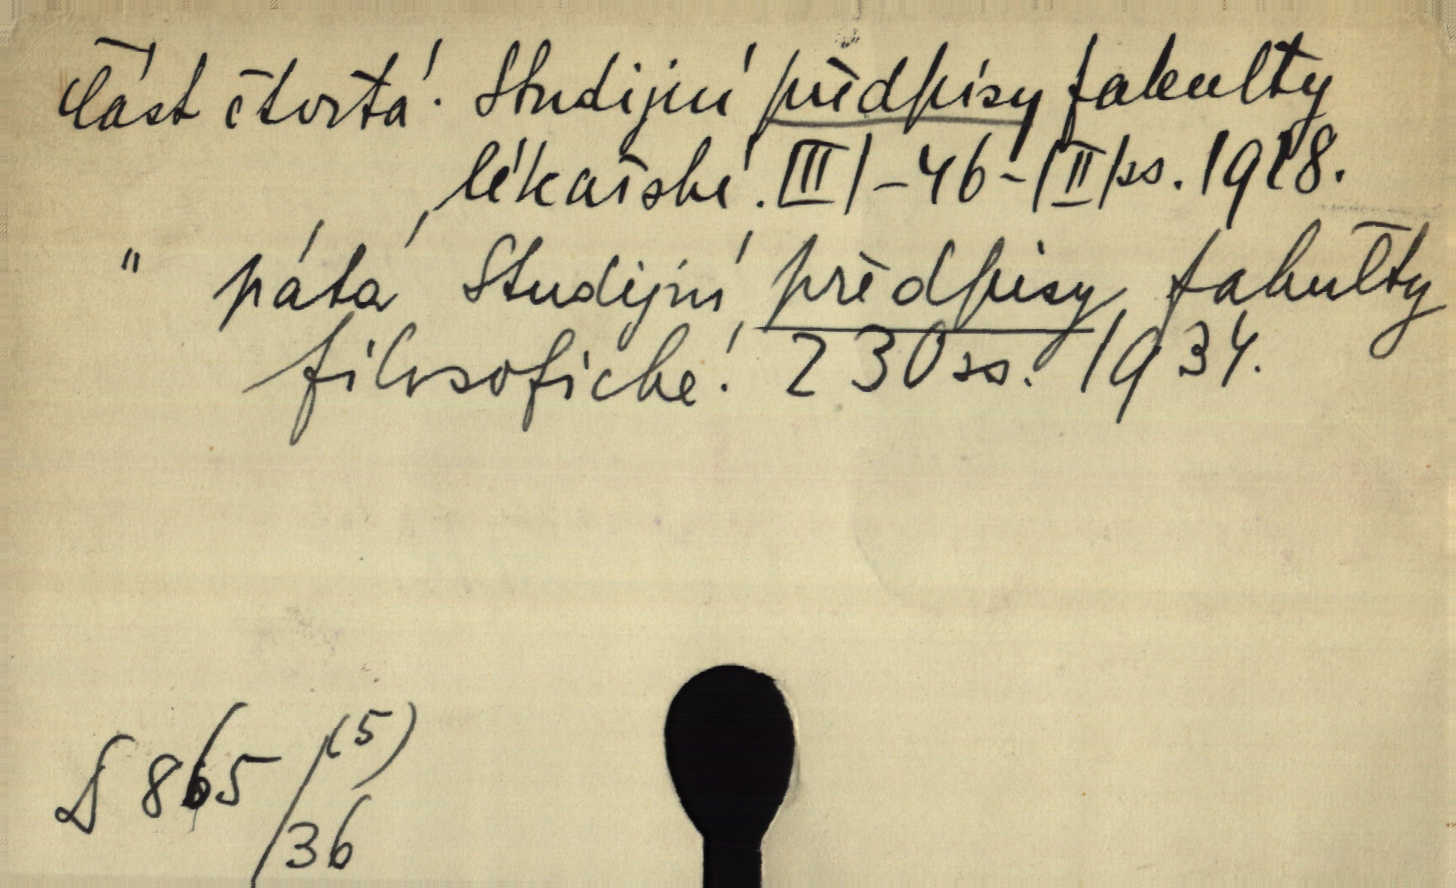 Část čtvrtá. Studijní předpisy fakulty
lékařské. |III|-46-|II|ss. 1928.
" pátá Studijní předpisy fakulty
filosofické. 230ss. 1934.
S 865/(5)
/36